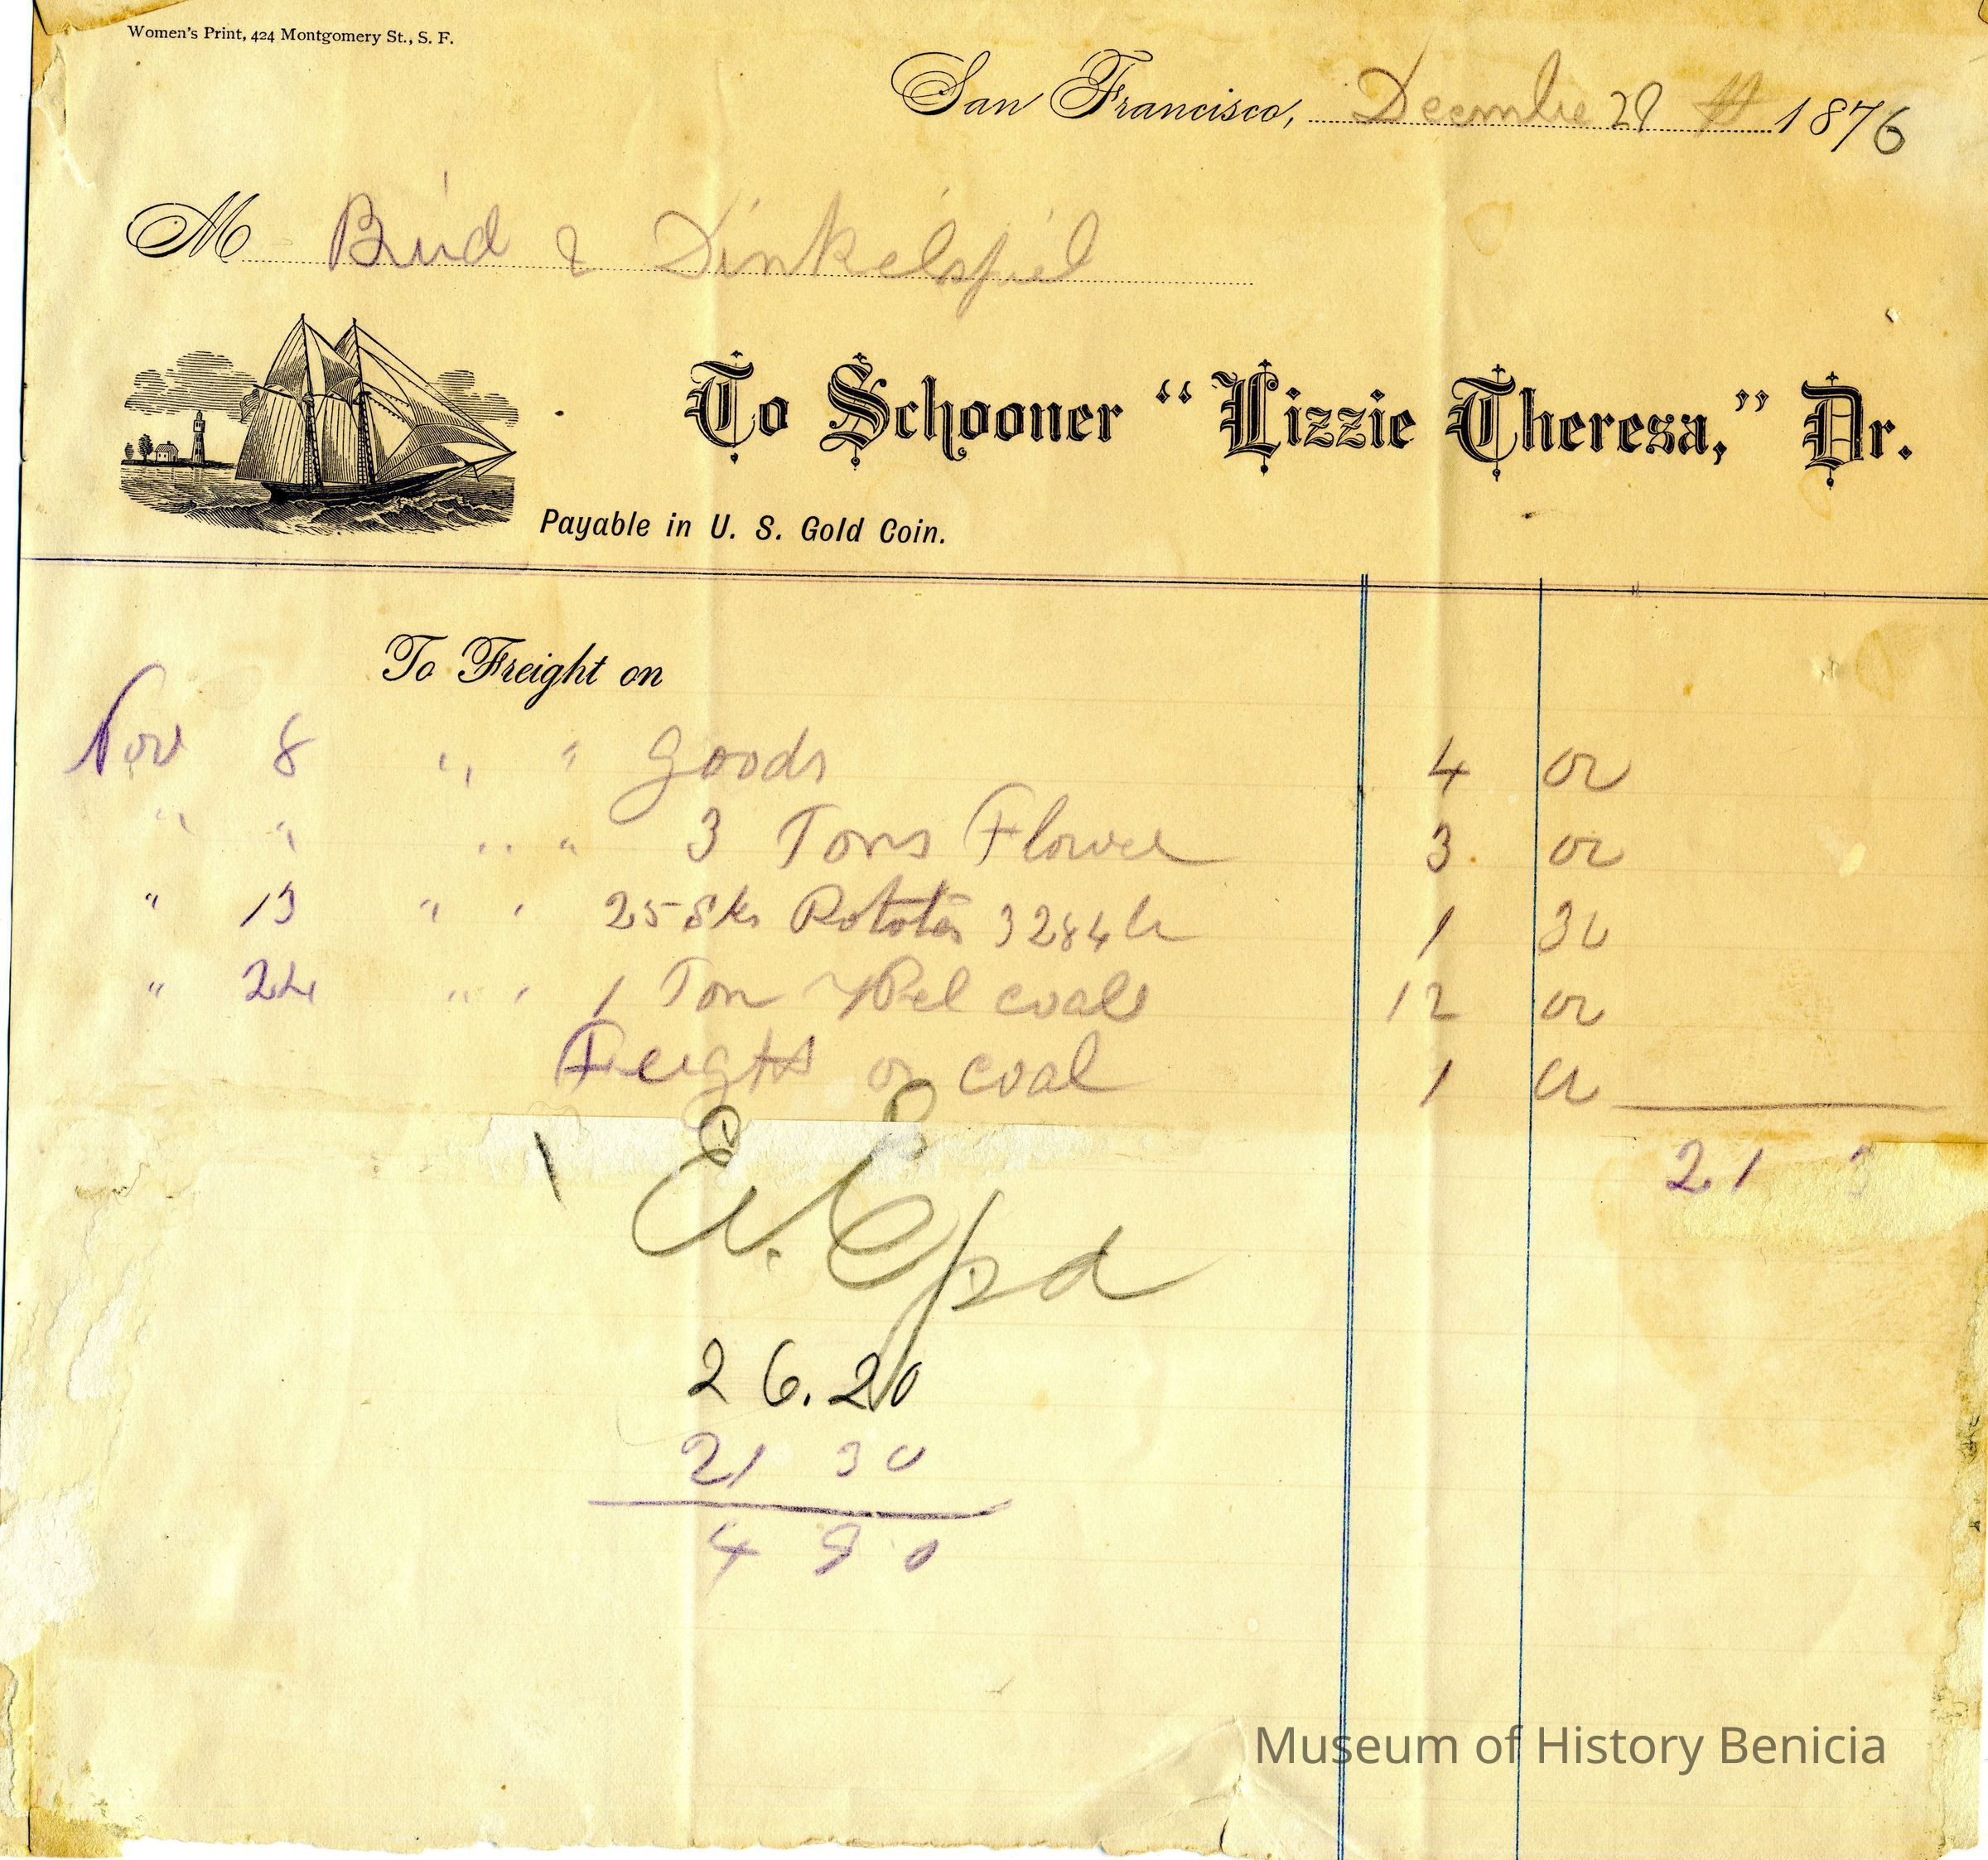 Women's Print, 424 Montgomery St., S. F.
San Francisco, Decembre 29 th 1876
M Bird & Dinkelspiel
To Schooner “Lizzie Theresa,” Dr.
Payable in U. S. Gold Coin.
To Freight on
Nov 8 " " Goods 4 00
" " " " 3 Tons Flower 3 00
" 13 " " 25 Sks 3284 1 30
" 24 " " 1 Ton coals 12 00
Freight on coal 1 00
21 3
pd
26.20
21 30
4 90
Museum of History Benicia